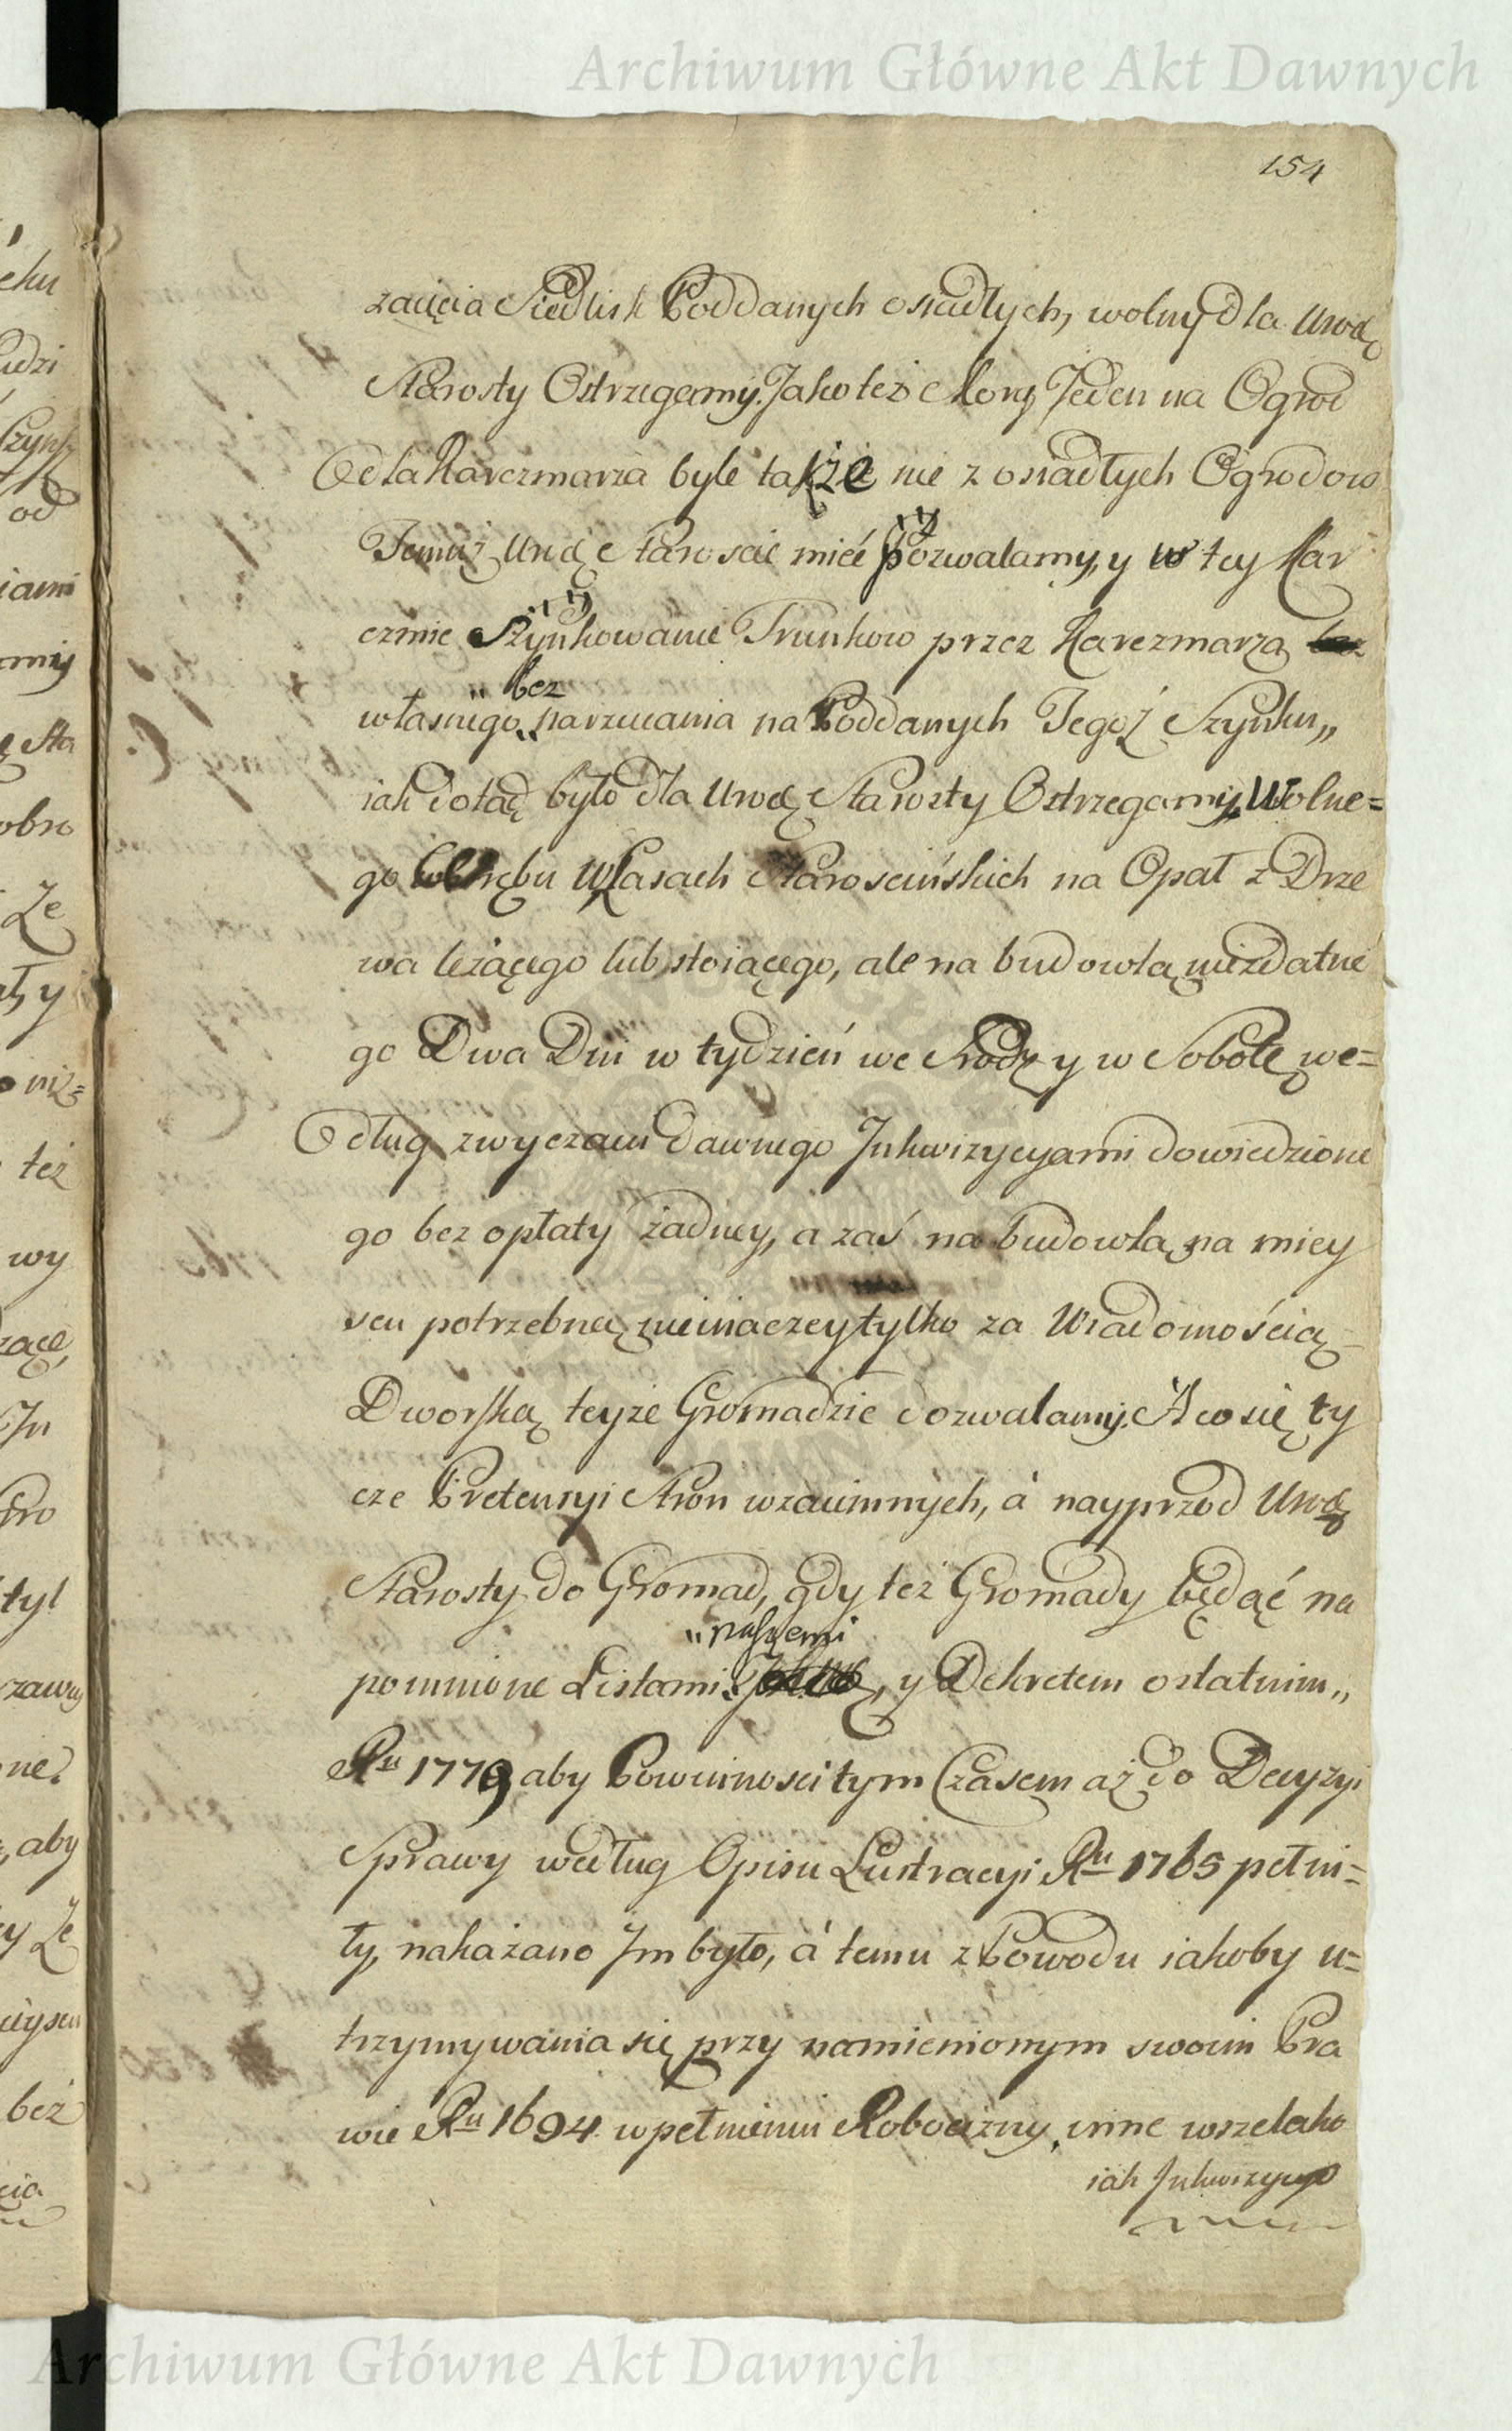 Archiwum Główne Akt Dawnych
154
zaięcia Siedlisk Poddanych osiadłych, wolny dla Urodz
Starosty Ostrzegamy. Jako też Morg Jeden na Ogrod
dla Karczmarza byle także nie z osiadłych Ogrodow
Temuż Urodz Staroscie mieć pozwalamy, y w tey Kar
czmie Szynkowanie Trunkow przez Karczmarza
" bez
własnego narzucania na Poddanych Tegoż Szynku„
iak dotąd było dla Urodz Starosty Ostrzegamy, Wolne=
go Wrębu W Lasach Staroscińskich na Opał z Drze
wa leżącego lub stoiącego, ale na budowlą niezdatne
go Dwa Dni w tydzień we Srodę y w Sobotę we=
dług zwyczaiu dawnego Inkwizycyami dowiedzione
go bez opłaty żadney, a zaś na budowlą na miey
scu potrzebną nieinaczey tylko za Wiadomością
Dworską teyże Gromadzie dozwalamy. A co się ty
cze Pretensyi Stron wzaiemnych, à nayprzod Urodz
Starosty do Gromad, gdy też Gromady będąć na
" naszemi
pomnione Listami, y Dekretem ostatnim„
Ru 1779 aby Powinnosci tym Czasem aż do Decyzyi
Sprawy według Opisu Lustracyi Ru 1765 pełni=
ły, nakazano Im było, à temu z Powodu iakoby u=
trzymywania się przy namienionym swoim Pra
wie Ru 1694 w pełnieniu Robocizny, inne wszelako
iak Inkwizycye
Archiwum Główne Akt Dawnych